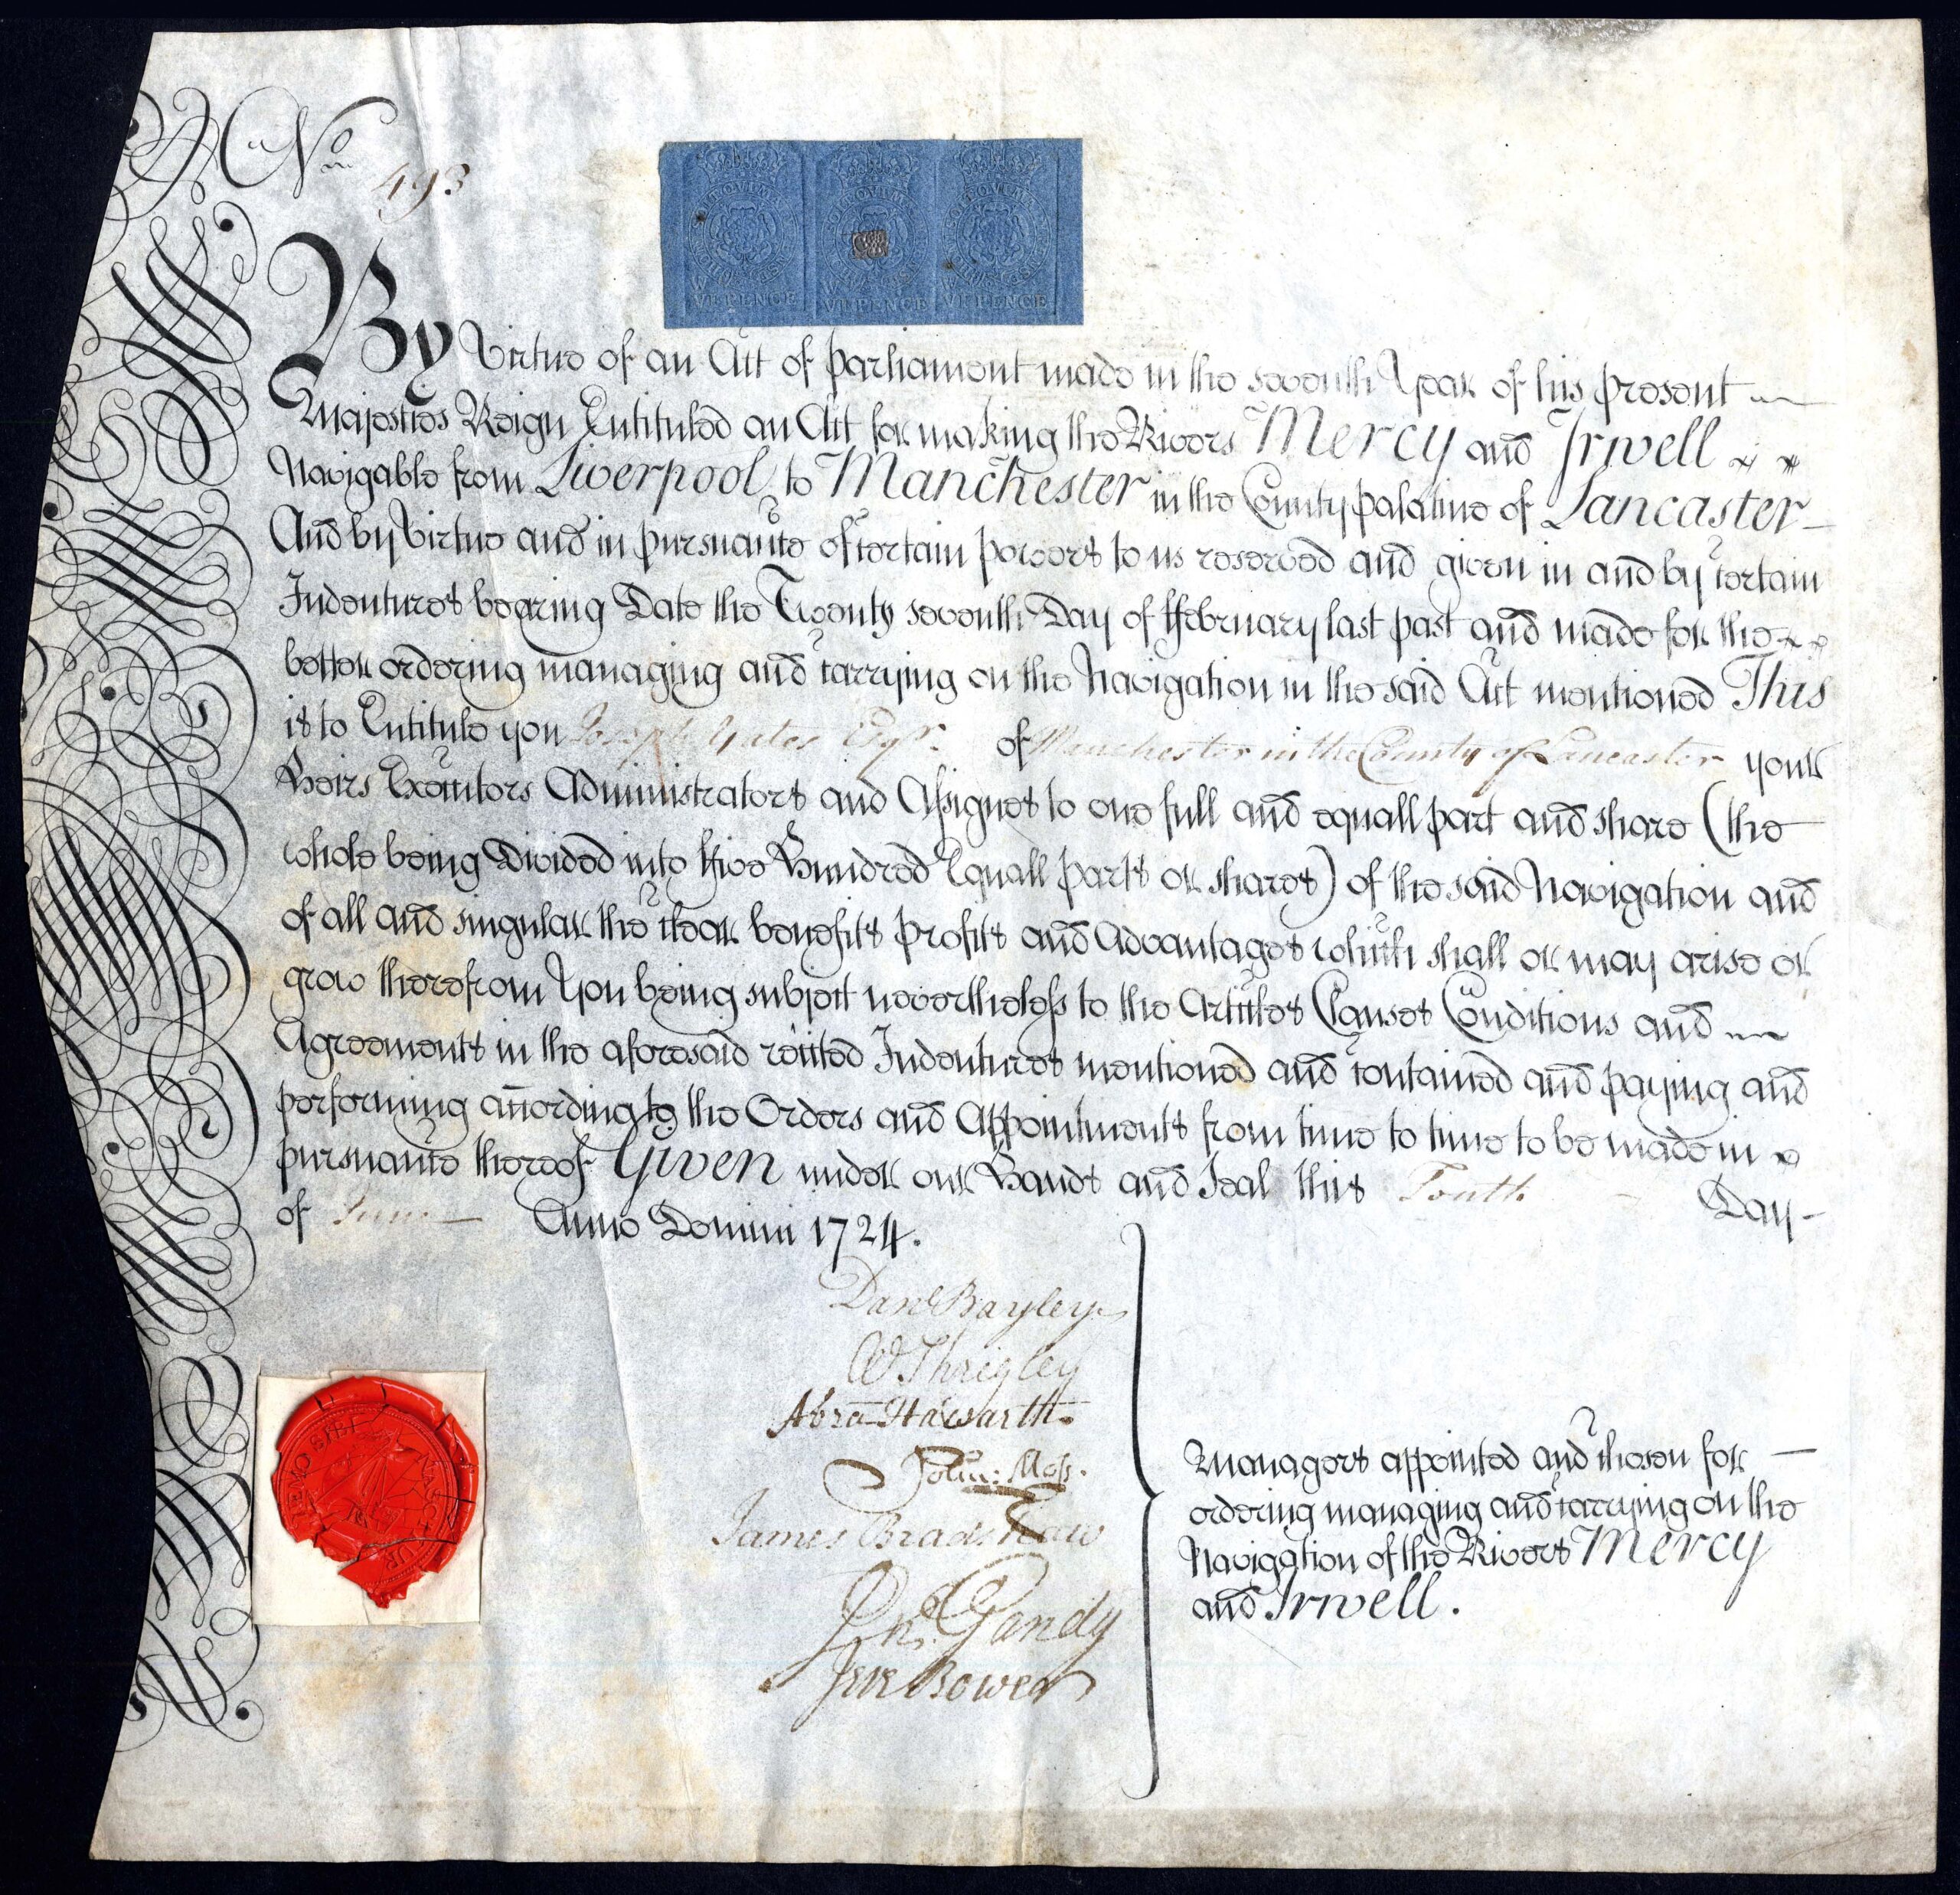 No
493
HONI SOIT QUI MAL Y PENSE
VI PENCE VI PENCE VI PENCE
By Virtue of an Act of Parliament made in the seventh Year of his present
Majesties Reign Entituled an Act for making the Rivers Mercy and Irwell
Navigable from Liverpool to Manchester in the County palatine of Lancaster
And by Virtue and in pursuance of certain powers to us reserved and given in and by certain
Indentures bearing Date the Twenty seventh Day of ffebruary last past and made for the
better ordering managing and carrying on the Navigation in the said Act mentioned This
is to Entitule you Joseph Yates Esqr. of Manchester in the County of Lancaster your
Heirs Executors Administrators and Assignes to one full and equall part and share (the
whole being Divided into ffive Hundred Equall parts or shares) of the said Navigation and
of all and singular the clear benefits profits and Advantages which shall or may arise or
grow therefrom You being subject nevertheless to the Articles Clauses Conditions and
Agreements in the aforesaid recited Indentures mentioned and contained and paying and
performing according to the Orders and Appointments from time to time to be made in
pursuance thereof Given under our Hands and Seal this Tenth Day
of June Anno Domini 1724.
Danl Bayley
W Shrigley
Abra Haworth
John: Moss.
James Bradshaw
Jno. Gandy
Jer Bower
Managers appointed and chosen for
ordering managing and carrying on the
Navigation of the Rivers Mercy
and Irwell.
NEMO SIBI NASCITUR